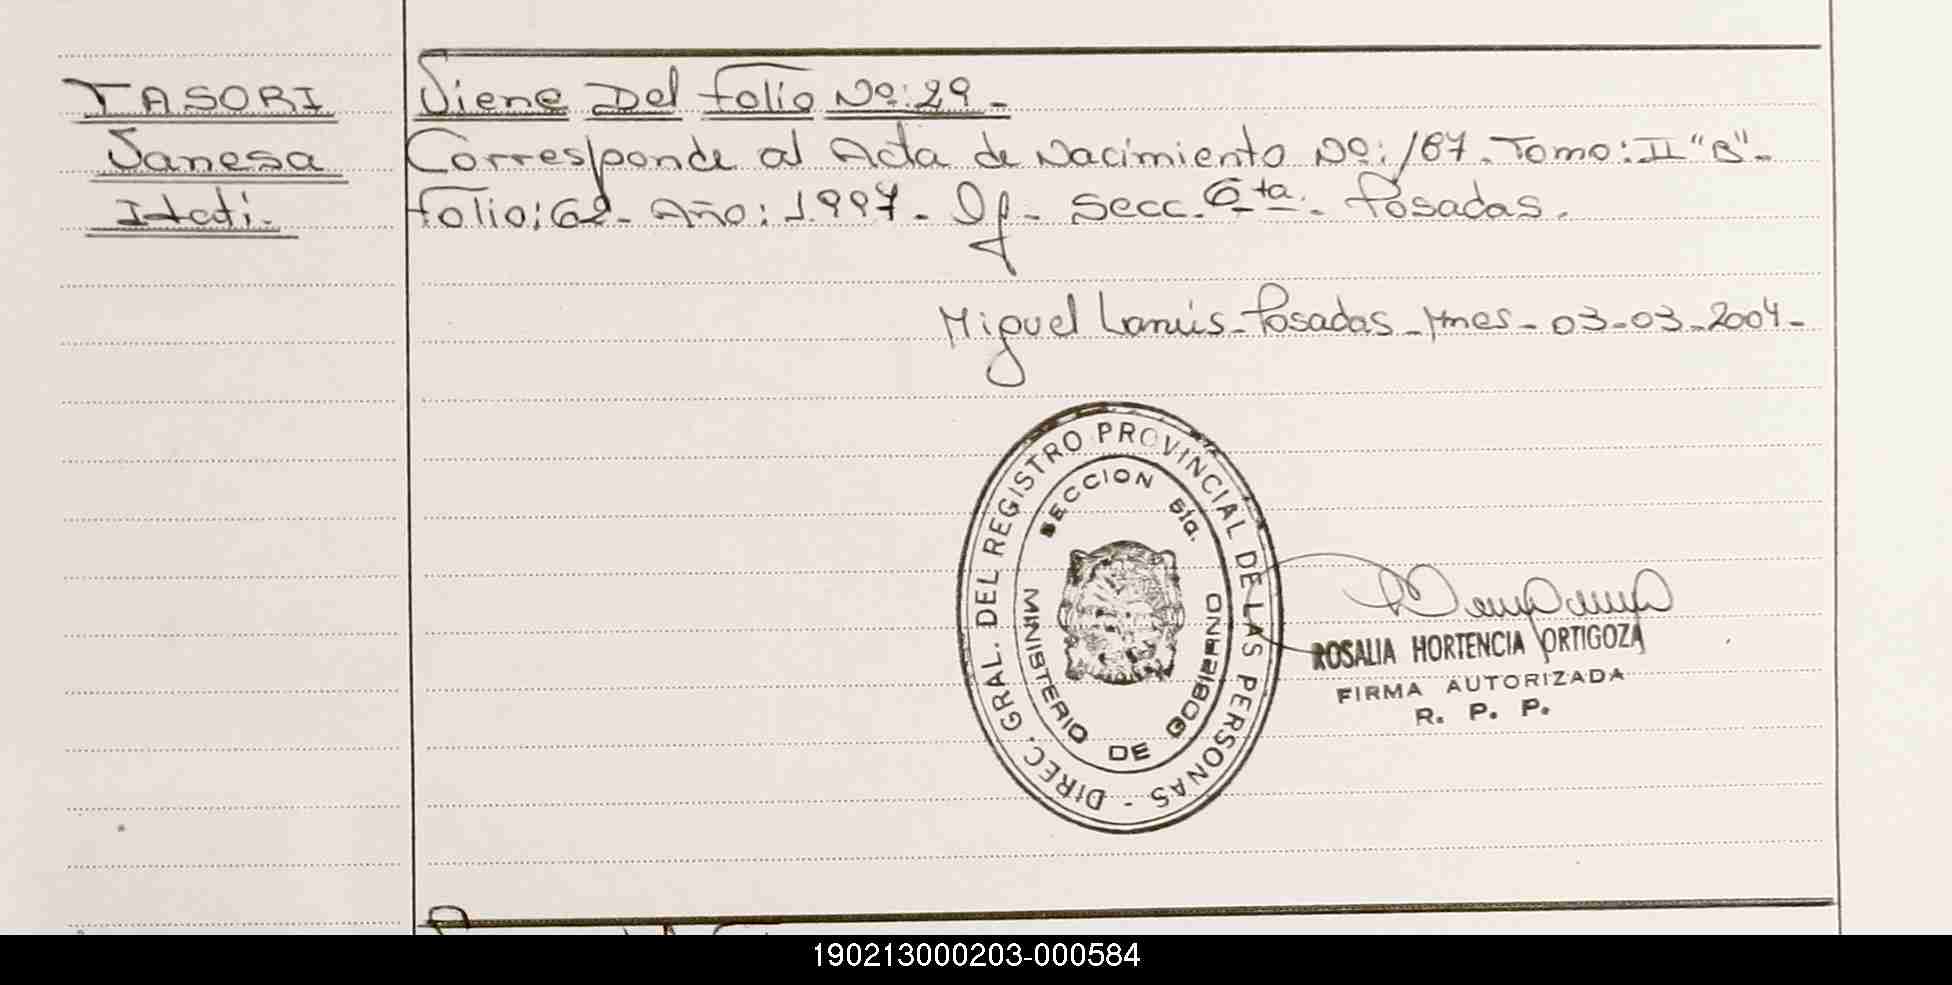 TASORI
Vanesa
Itati.
Viene Del folio Nº: 29.-
Corresponde al Acta de Nacimiento Nº: 187. Tomo: II "B"-
folio: 62- Año: 1.997- Of- Secc. 6ta.- Posadas.
Miguel Lanús- Posadas- Mnes- 03-03-2004-
DIREC. GRAL. DEL REGISTRO PROVINCIAL DE LAS PERSONAS -
SECCION 5ta.
MINISTERIO DE GOBIERNO
ROSALIA HORTENCIA ORTIGOZA
FIRMA AUTORIZADA
R. P. P.
190213000203-000584